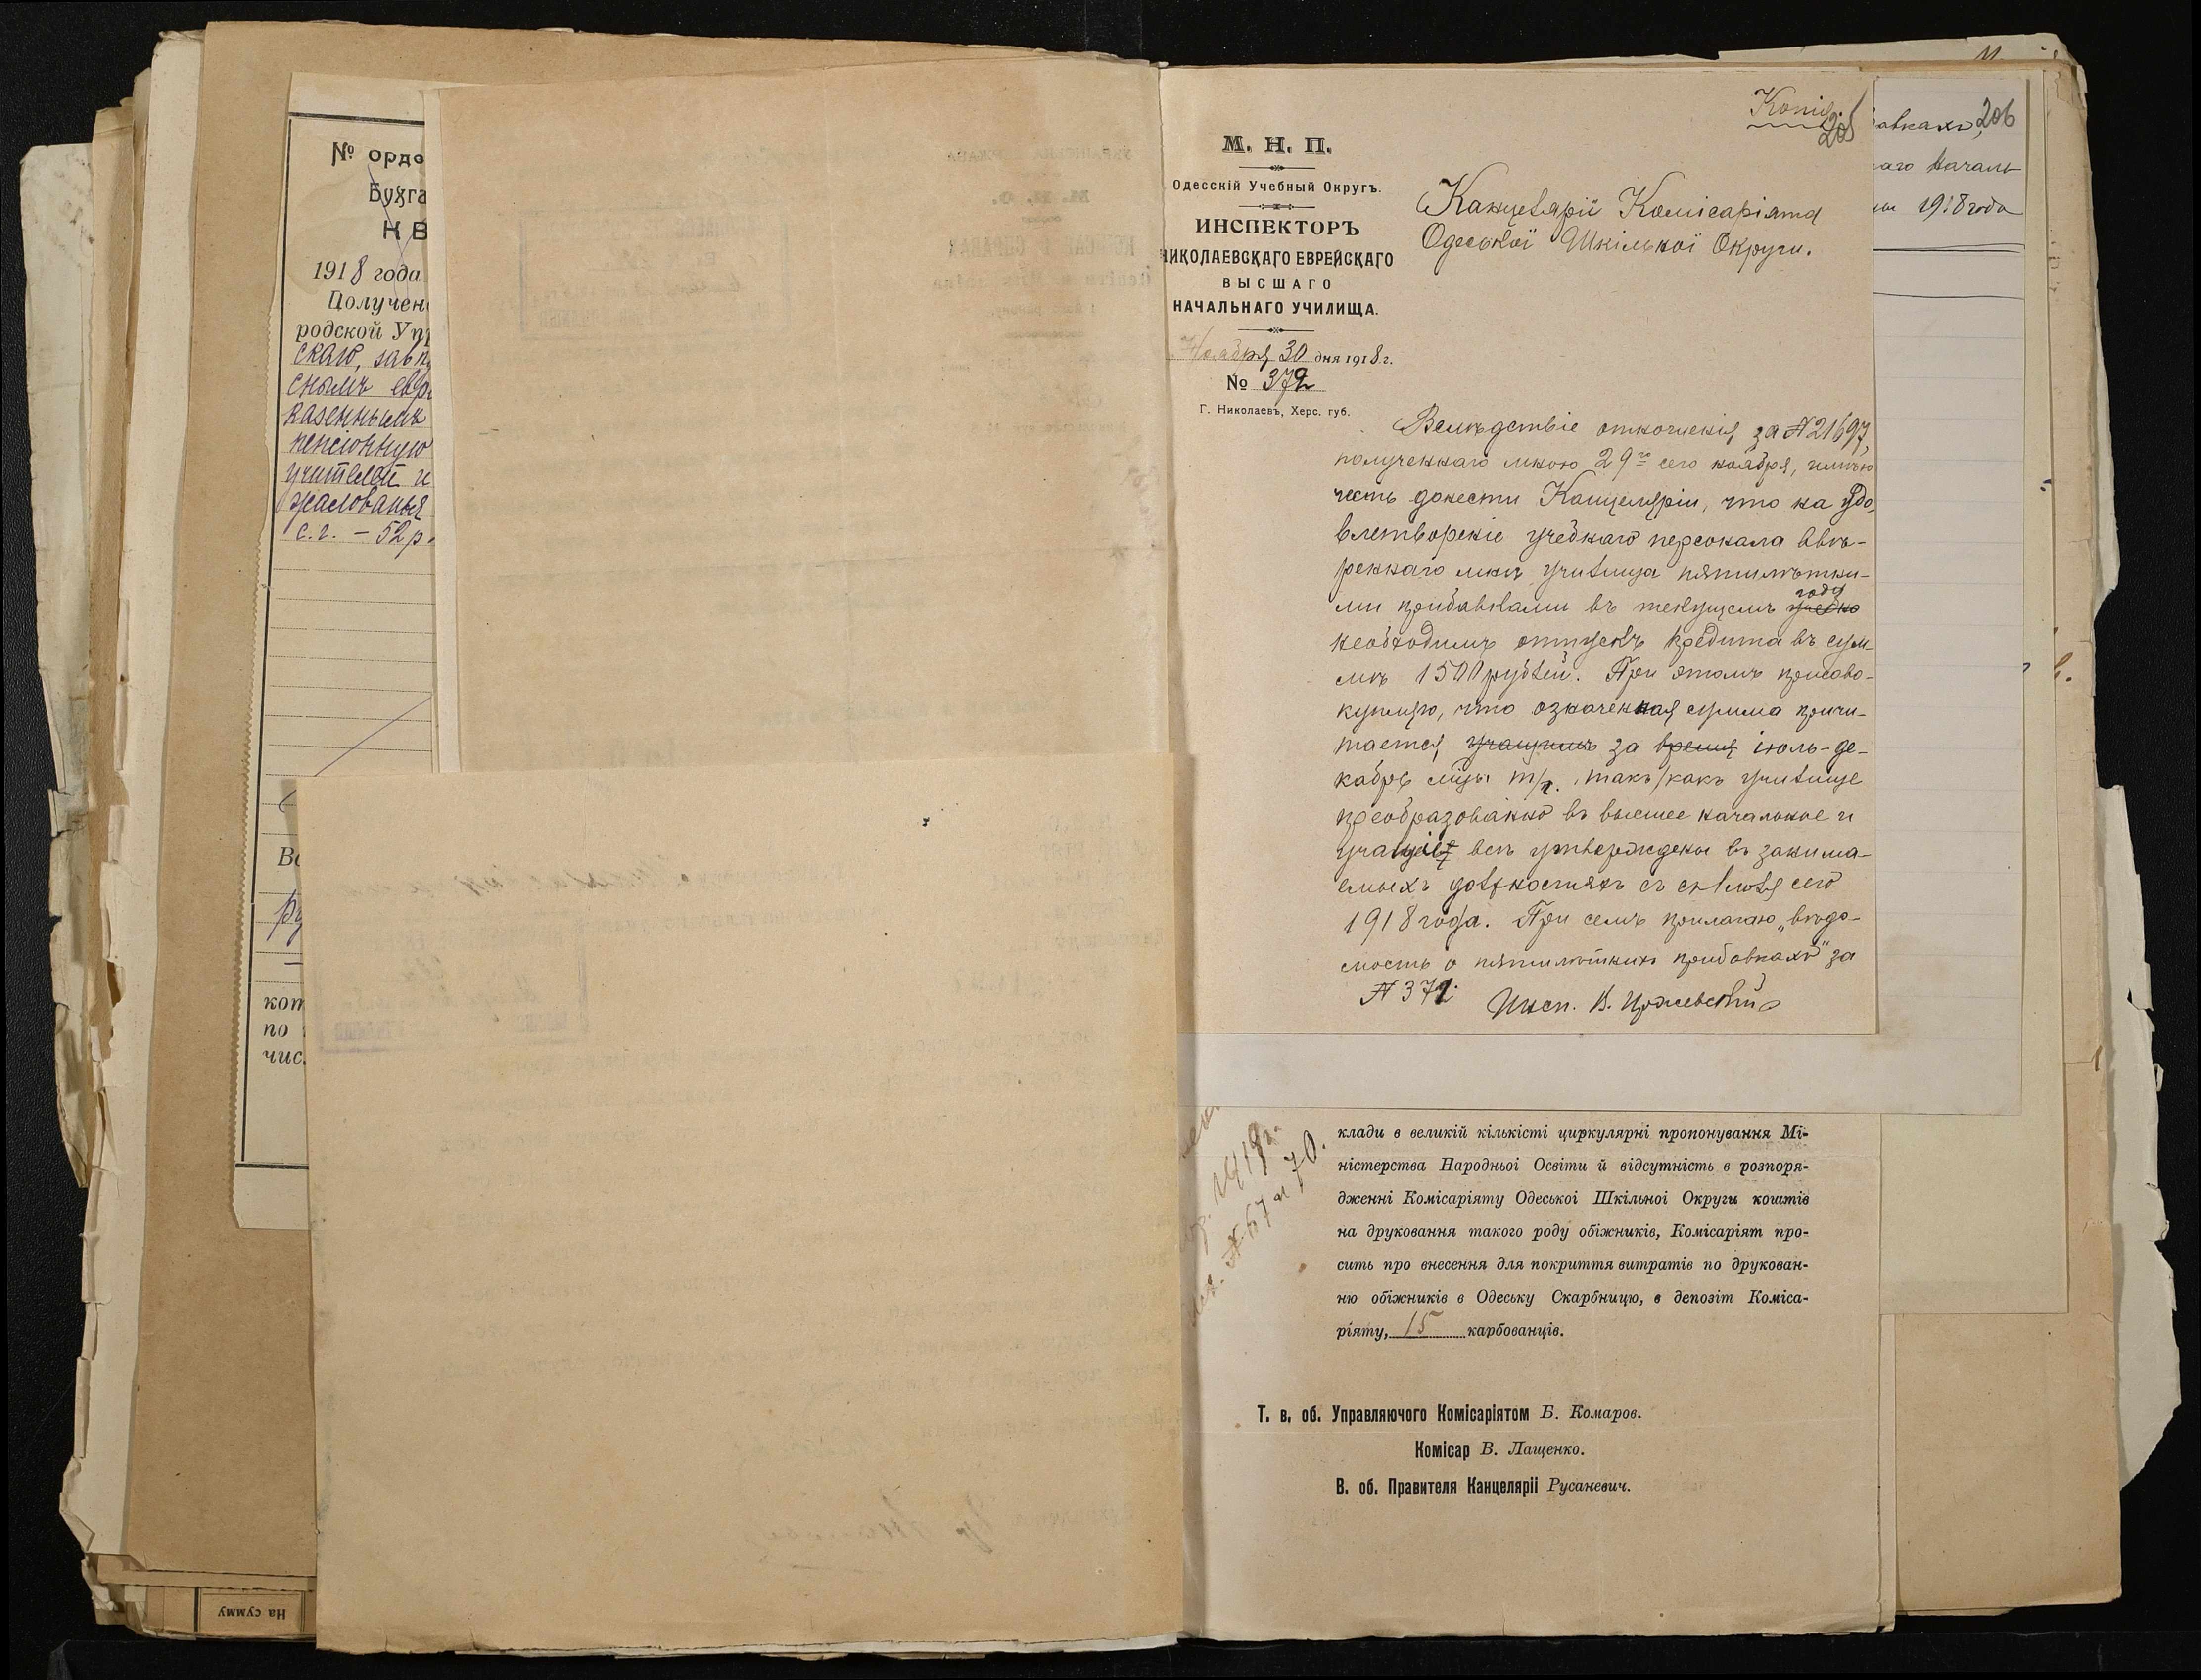 № ордо
Бухга
1918 года
Получен
родской Упр
скаго, зав
снымъ евр
казеннымъ
пенсіонную
учителей и
жалованья
с. г. — 52 р.
кот
по
чис
На сумму
Копія.
205
М. Н. П.
Одесскій Учебный Округъ.
ИНСПЕКТОРЪ
НИКОЛАЕВСКАГО ЕВРЕЙСКАГО
ВЫСШАГО
НАЧАЛЬНАГО УЧИЛИЩА.
Ноября 30 дня 1918 г.
№ 372
Г. Николаевъ, Херс. губ.
Канцелярії Комісаріята
Одеської Шкільної Округи.
Вслѣдствіе отношенія за № 21697,
полученнаго мною 29го сего ноября, имѣю
честь донести Канцеляріи, что на удо-
влетвореніе учебнаго персонала ввѣ-
реннаго мнѣ училища пятилѣтни-
ми прибавками въ текущемъ году
необходимъ отпускъ кредита въ сум-
мѣ 1500 рублей. При этомъ присово-
купляю, что означенная сумма причи-
тается учащимъ за время іюль-де-
кабрь мѣсяцы т/г. такъ какъ училище
преобразовано въ высшее начальное и
учащіе всѣ утверждены въ занима-
емыхъ должностяхъ съ 1 іюля сего
1918 года. При семъ прилагаю „вѣдо-
мость о пятилѣтнихъ прибавкахъ" за
№ 371. Инсп. В. Иржевскій
авкахъ, 206
аго Началь
1918 года
клади в великій кількісті циркулярні пропонування Мі-
ністерства Народньоі Освіти й відсутність в розпоря-
дженні Комісаріяту Одеськоі Шкільноі Округи коштів
на друковання такого роду обіжників, Комісаріят про-
сить про внесення для покриття витратів по друкован-
ню обіжників в Одеську Скарбницю, в депозіт Коміса-
ріяту, 15 карбованців.
№ 67 и 70.
Т. в. об. Управляючого Комісаріятом Б. Комаров.
Комісар В. Лащенко.
В. об. Правителя Канцеляріі Русаневич.